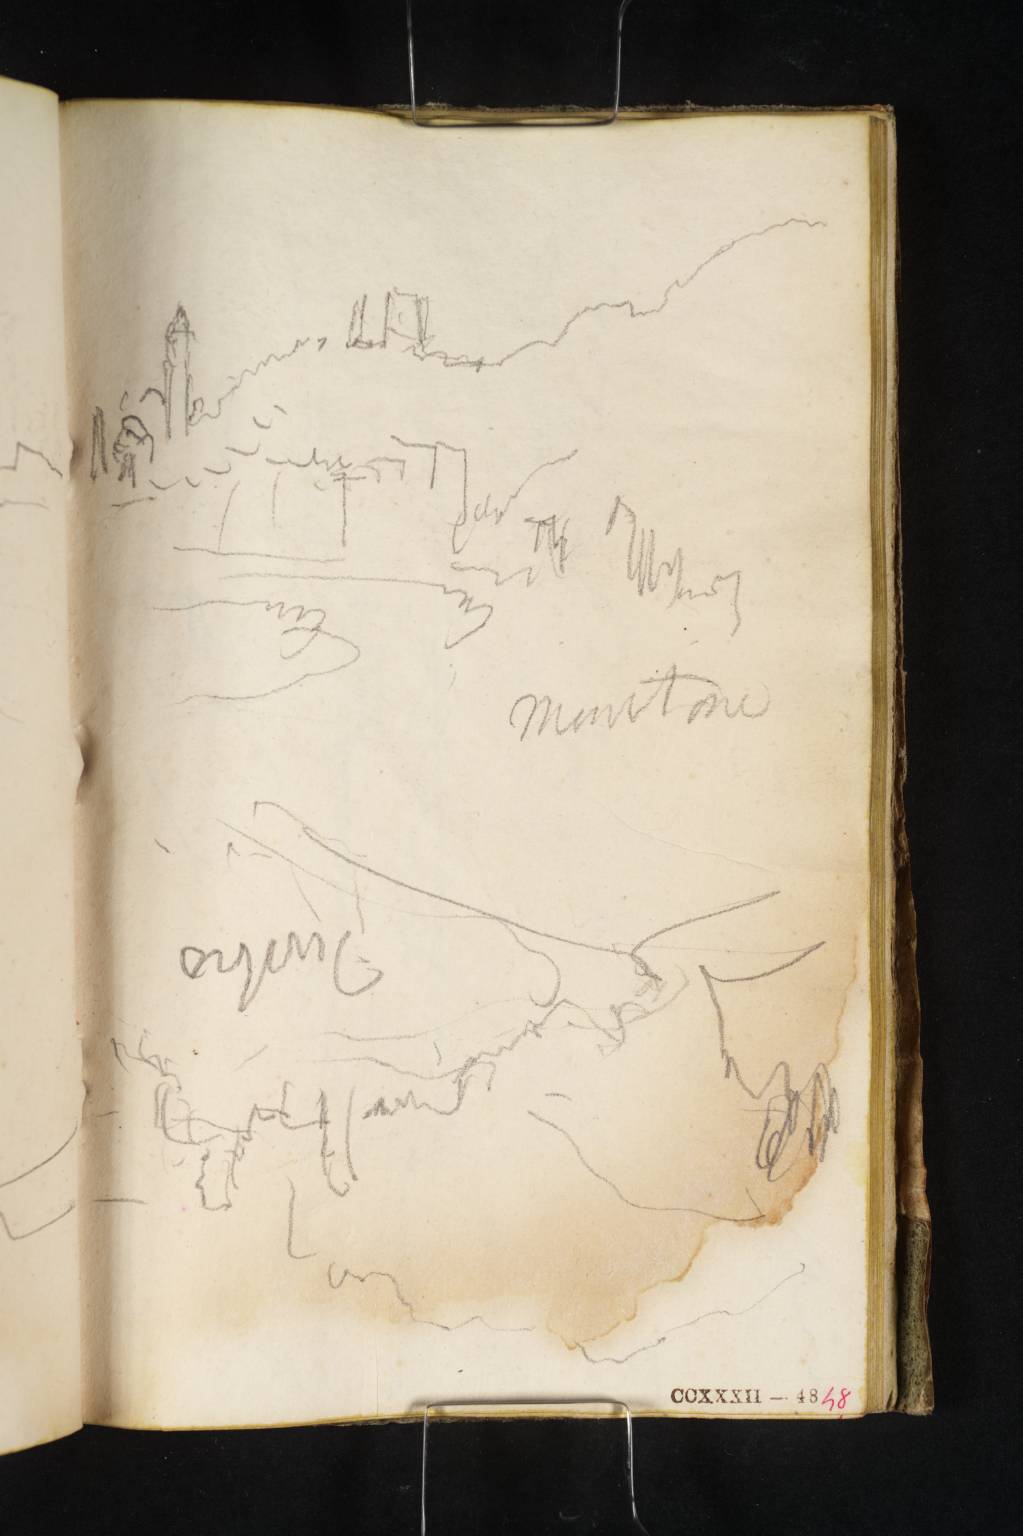 Mentone
CCXXXII — 48
48